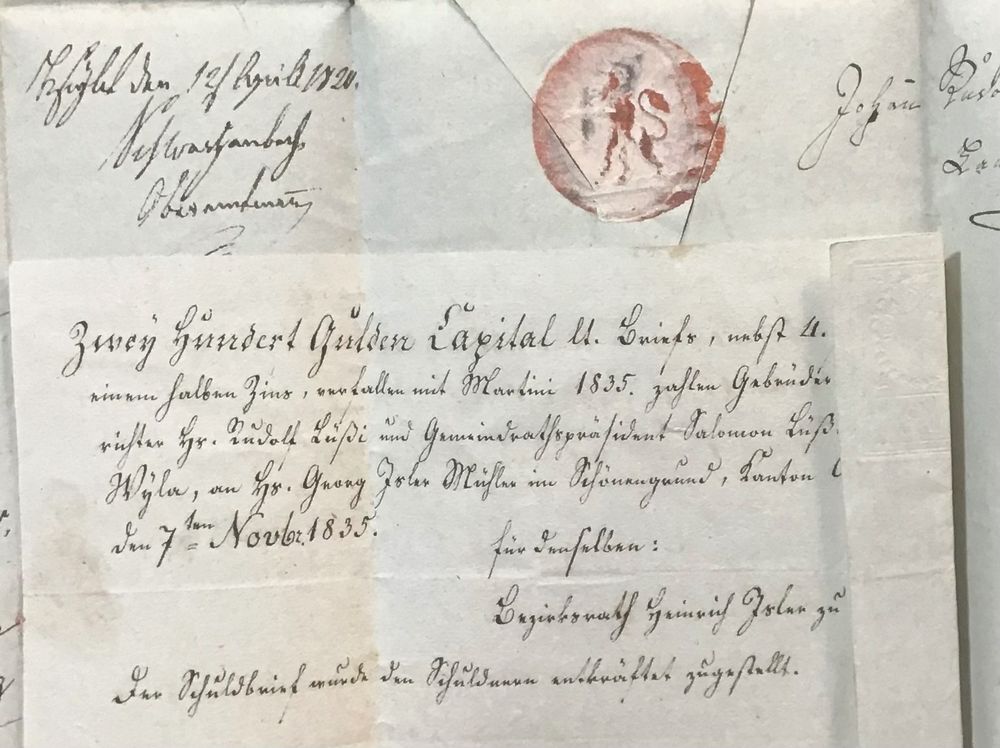 den 12. April 1820.
Schwarzenbach
Oberamtmann
Johann
Zwey Hundert Gulden Capital lt. Briefs, nebst 4.
einem halben Zins, verfallen mit Martini 1835. zahlen Gebrüder
richter Hs. Rudolf Lüßi und Gemeindrathspräsident Salomon Lüß
Wyla, an Hs. Georg Isler Müller im Schönengrund, Kanton
den 7ten Novbr. 1835.
für denselben:
Bezirksrath Heinrich Isler zu
Der Schuldbrief wurde den Schuldnern entkräftet zugestellt.